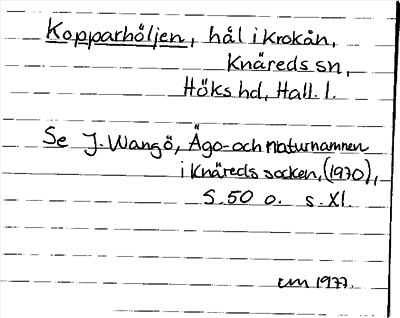 Kopparhöljen, hål i Krokån,
Knäreds sn,
Höks hd, Hall. l.
Se J. Wangö, Ägo- och naturnamnen
i Knäreds socken, (1970),
S. 50 o. s. XI.
um 1977.